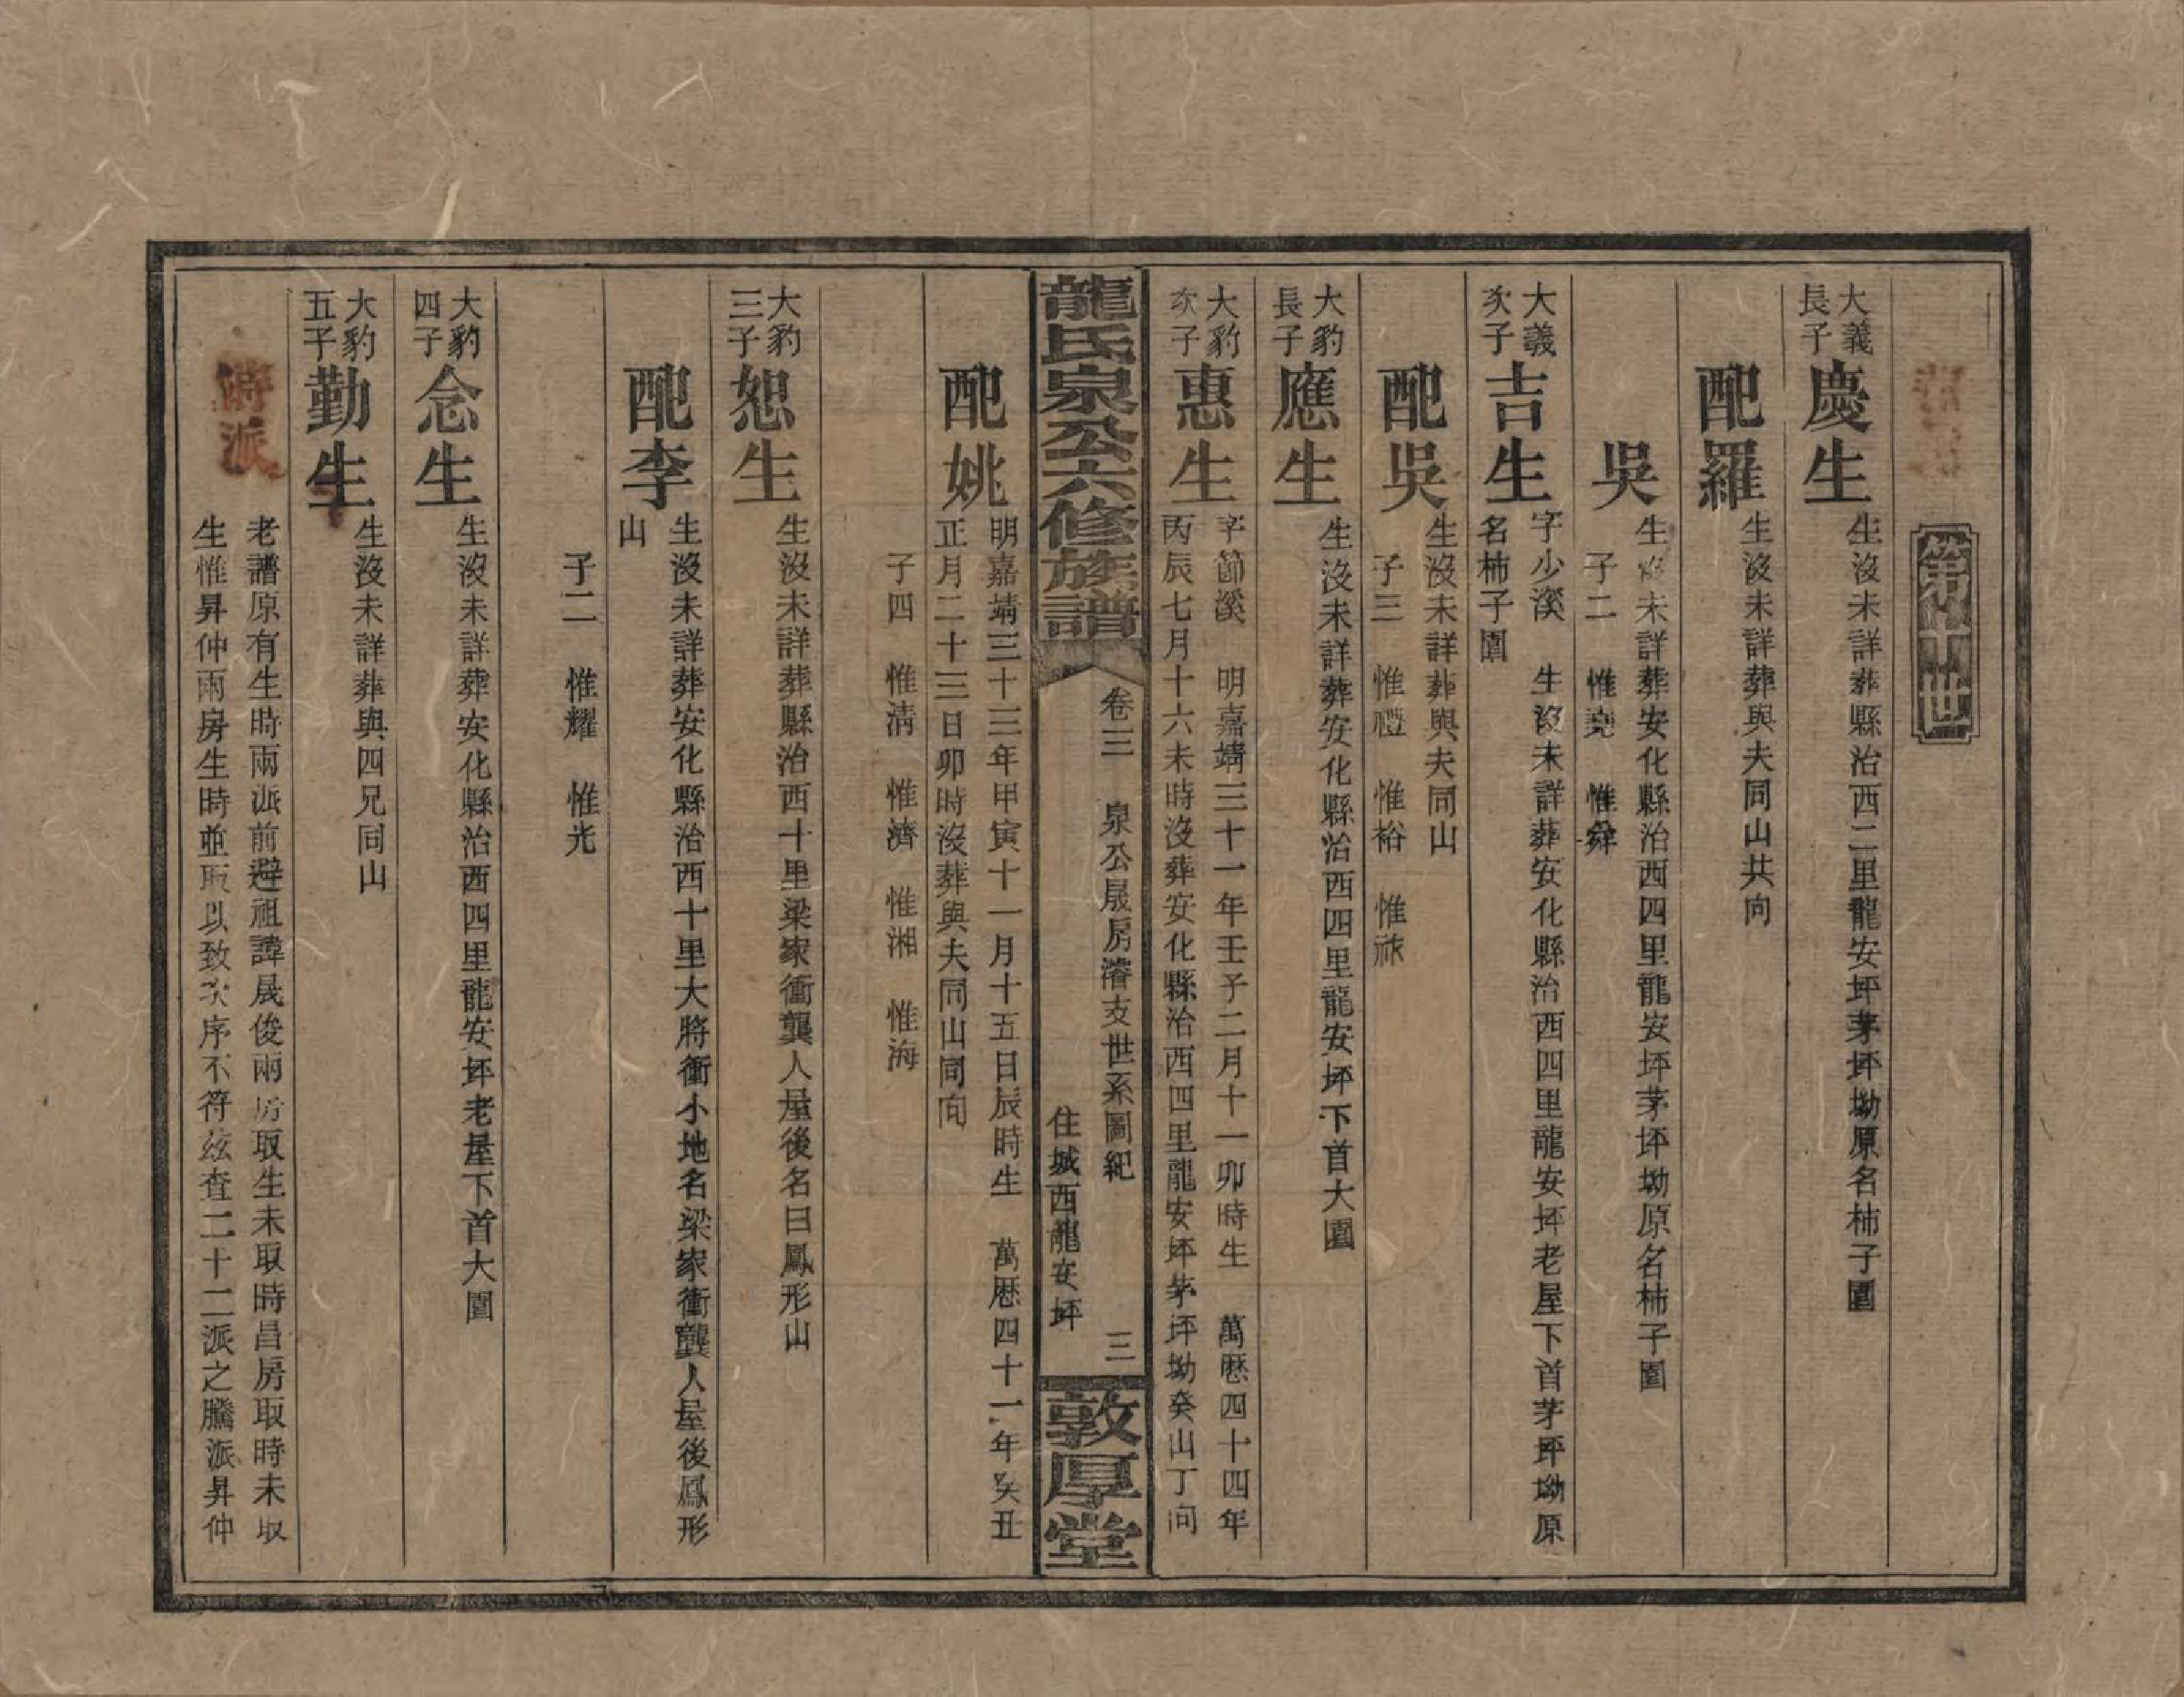 第十世
大義
長子
慶生
生沒未詳葬縣治西二里龍安坪茅坪坳原名柿子園
配羅
生沒未詳葬與夫同山共向
吳
生沒未詳葬安化縣治西四里龍安坪茅坪坳原名柿子園
子二　惟堯　惟舜
大義
次子
吉生
字少溪　生沒未詳葬安化縣治西四里龍安坪老屋下首茅坪坳原
名柿子園
配吳
生沒未詳葬與夫同山
子三　惟禮　惟裕　惟祿
大豹
長子
應生
生沒未詳葬安化縣治西四里龍安坪下首大園
大豹
次子
惠生
字節溪　明嘉靖三十一年壬子二月十一卯時生　萬厯四十四年
丙辰七月十六未時沒葬安化縣治西四里龍安坪茅坪坳癸山丁向
龍氏泉公六修族譜
卷三　泉公晟房濬支世系圖紀　三
住城西龍安坪
敦厚堂
配姚
明嘉靖三十三年甲寅十一月十五日辰時生　萬厯四十一年癸丑
正月二十三日卯時沒葬與夫同山同向
子四　惟清　惟濟　惟湘　惟海
大豹
三子
恕生
生沒未詳葬縣治西十里梁家衝龔人屋後名曰鳳形山
配李
生沒未詳葬安化縣治西十里大將衝小地名梁家衝龔人屋後鳳形
山
子二　惟耀　惟光
大豹
四子
念生
生沒未詳葬安化縣治西四里龍安坪老屋下首大園
大豹
五子
勤生
生沒未詳葬與四兄同山
時派
老譜原有生時兩派前避祖諱晟俊兩房取生未取時昌房取時未取
生惟昇仲兩房生時並取以致次序不符茲查二十二派之騰派昇仲